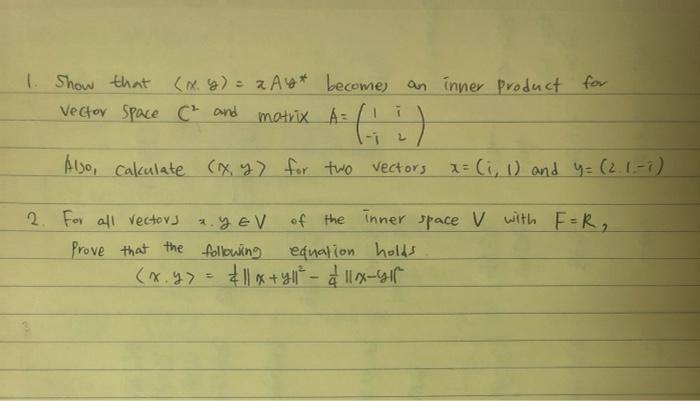 1. Show that ⟨x.y⟩ = xAy* becomes an inner product for
vector space C² and matrix A = ( 1 i
-i 2 )
Also, calculate ⟨x,y⟩ for two vectors x=(i,1) and y=(2.1.-i)
2. For all vectors x.y ∈ V of the inner space V with F=R,
Prove that the following equation holds.
⟨x.y⟩ = 1/4 ||x+y||² - 1/4 ||x-y||²
3